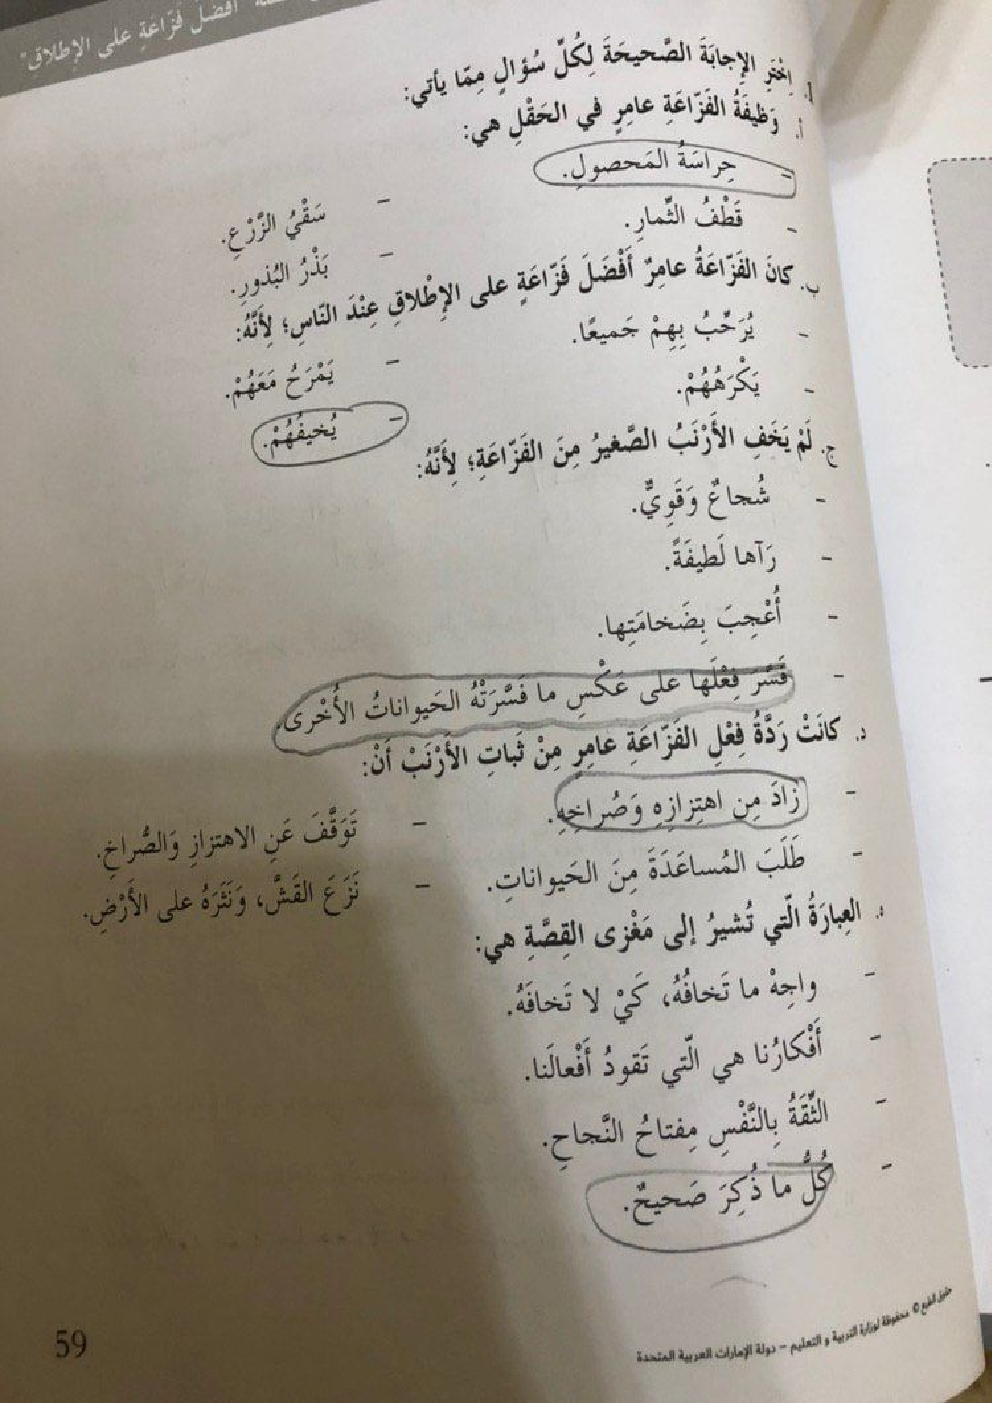 أفضل فزّاعةٍ على الإطلاق"
1. اِخْتَرِ الإِجابَةَ الصَّحيحَةَ لِكُلِّ سُؤالٍ مِمّا يأتي:
أ. وَظيفَةُ الفَزّاعَةِ عامِرٍ في الحَقْلِ هي:
- حِراسَةُ المَحصولِ.
- قَطْفُ الثِّمارِ. - سَقْيُ الزَّرْعِ.
- بَذْرُ البُذورِ.
ب. كانَ الفَزّاعَةُ عامِرٌ أَفْضَلَ فَزّاعَةٍ على الإِطْلاقِ عِنْدَ النّاسِ؛ لِأَنَّهُ:
- يُرَحِّبُ بِهِمْ جَميعًا. - يَمْرَحُ مَعَهُمْ.
- يَكْرَهُهُمْ. - يُخيفُهُمْ.
ج. لَمْ يَخَفِ الأَرْنَبُ الصَّغيرُ مِنَ الفَزّاعَةِ؛ لِأَنَّهُ:
- شُجاعٌ وَقَوِيٌّ.
- رَآها لَطيفَةً.
- أُعْجِبَ بِضَخامَتِها.
- فَسَّرَ فِعْلَها على عَكْسِ ما فَسَّرَتْهُ الحَيواناتُ الأُخْرى.
د. كانَتْ رَدَّةُ فِعْلِ الفَزّاعَةِ عامِرٍ مِنْ ثَباتِ الأَرْنَبْ أَنْ:
- زادَ مِن اهتِزازِهِ وَصُراخِهِ. - تَوَقَّفَ عَنِ الاهتزازِ وَالصُّراخِ.
- طَلَبَ المُساعَدَةَ مِنَ الحَيواناتِ. - نَزَعَ القَشَّ، وَنَثَرَهُ على الأَرْضِ.
ه. العِبارَةُ الّتي تُشيرُ إلى مَغْزى القِصَّةِ هي:
- واجِهْ ما تَخافُهُ، كَيْ لا تَخافَهُ.
- أَفْكارُنا هي الّتي تَقودُ أَفْعالَنا.
- الثِّقَةُ بِالنَّفْسِ مِفتاحُ النَّجاحِ.
- كُلُّ ما ذُكِرَ صَحيحٌ.
حقوق الطبع © محفوظة لوزارة التربية و التعليم – دولة الإمارات العربية المتحدة
59